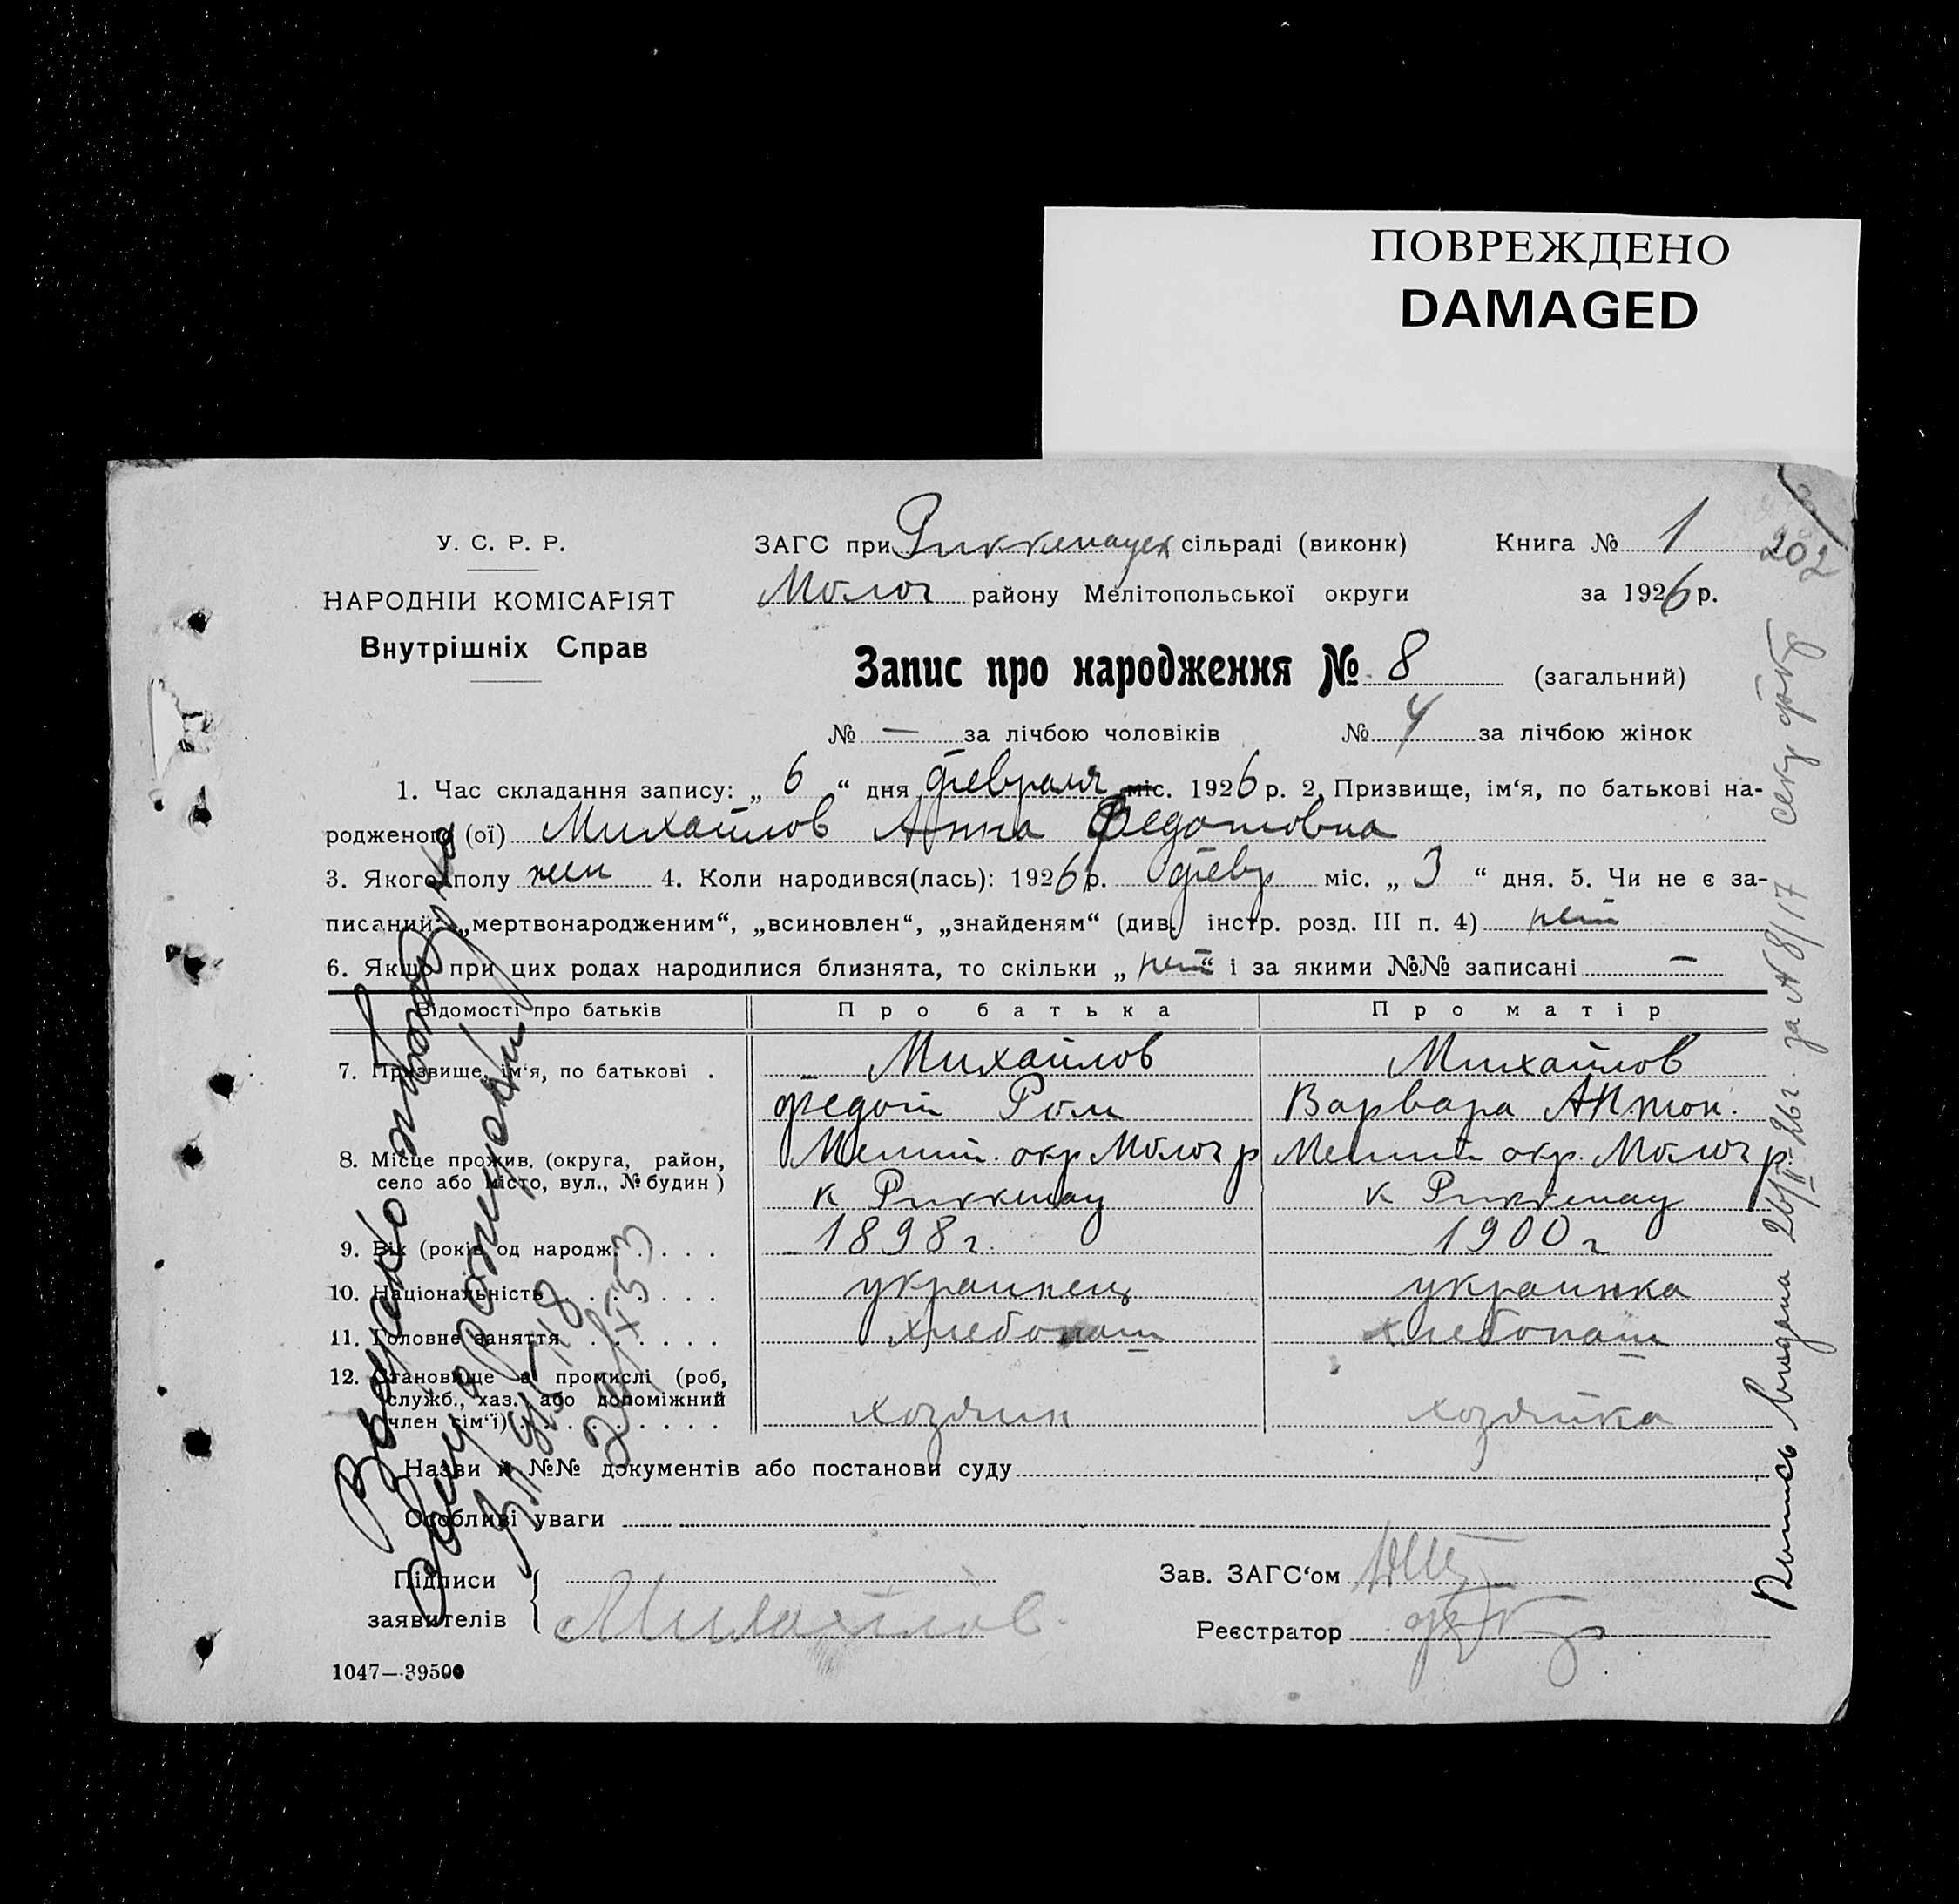 ПОВРЕЖДЕНО
DAMAGED
У. С. Р. Р.
НАРОДНІЙ КОМІСАРІЯТ
Внутрішніх Справ
ЗАГС при Риккенауск сільраді (виконк)
Книга № 1
202
Молоч району Мелітопольської округи
за 1926 р.
Запис про народження № 8 (загальний)
№ — за лічбою чоловіків № 4 за лічбою жінок
1. Час складання запису: „ 6 “ дня февраля міс. 1926 р. 2. Призвище, ім‘я, по батькові на-
родженого (ої) Михайлов Анна Федотовна
3. Якого полу жен 4. Коли народився(лась): 1926 р. февр міс. „ 3 “ дня. 5. Чи не є за-
писаний: „мертвонародженим“, „всиновлен“, „знайденям“ (див. інстр. розд. III п. 4) нет
6. Якщо при цих родах народилися близнята, то скільки „ нет “ і за якими №№ записані —
Відомості про батьків Про батька Про матір
7. Призвище, ім‘я, по батькові . Михайлов Михайлов
Федот Ром Варвара Антон.
8. Місце прожив. (округа, район, Мелит. окр Молоч р Мелит окр. Молоч р.
село або місто, вул., № будин) к Риккенау к Риккенау
9. Вік (років од народж. . . . . 1898 г. 1900 г
10. Національність . . . . . . . украинец украинка
11. Головне заняття . . . . . . . хлебопаш хлебопаш
12. Становище в промислі (роб,
служб., хаз. або допоміжний
член сім‘ї) . . . . . . . . . хозяин хозяйка
Назви й №№ документів або постанови суду
Особливі уваги
Підписи
заявителів
Михайлов.
Зав. ЗАГС‘ом
Реєстратор
1047—39500
Випись выдана 26/II-26 г. за № 8/17